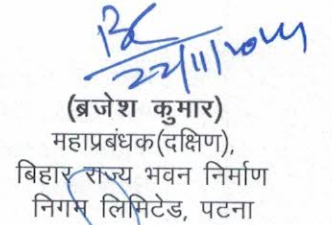 22/11/2024
(ब्रजेश कुमार)
महाप्रबंधक(दक्षिण),
बिहार राज्य भवन निर्माण
निगम लिमिटेड, पटना